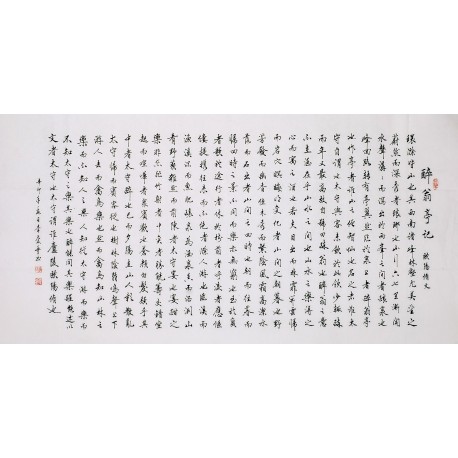 醉翁亭記 歐陽修文
環滁皆山也其西南諸峰林壑尤美望之
蔚然而深秀者琅琊也山行六七里漸聞
水聲潺潺而瀉出於兩峯之間者釀泉也
峰回路轉有亭翼然臨於泉上者醉翁亭
也作亭者誰山之僧智仙也名之者誰太
守自謂也太守與客來飲於此飲少輒醉
而年又最高故自號曰醉翁也醉翁之意
不在酒在乎山水之間也山水之樂得之
心而寓之酒也若夫日出而林霏開雲歸
而岩穴暝晦明變化者山間之朝暮也野
芳發而幽香佳木秀而繁陰風霜高潔水
落而石出者山間之四時也朝而往暮而
歸四時之景不同而樂亦無窮也至於負
者歌於途行者休於樹前者呼後者應傴
僂提攜往來而不絕者滁人遊也臨溪而
漁溪深而魚肥釀泉為酒泉香而酒洌山
肴野蔌雜然而前陳者太守宴也宴酣之
樂非絲非竹射者中弈者勝觥籌交錯坐
起而喧嘩者眾賓歡也蒼顏白髮頹乎其
中者太守醉也已而夕陽在山人影散亂
太守歸而賓客從也樹林陰翳鳴聲上下
遊人去而禽鳥樂也然而禽鳥知山林之
樂而不知人之樂人知從太守遊而樂而
不知太守之樂其樂也醉能同其樂醒能述以
文者太守也太守謂誰廬陵歐陽修也